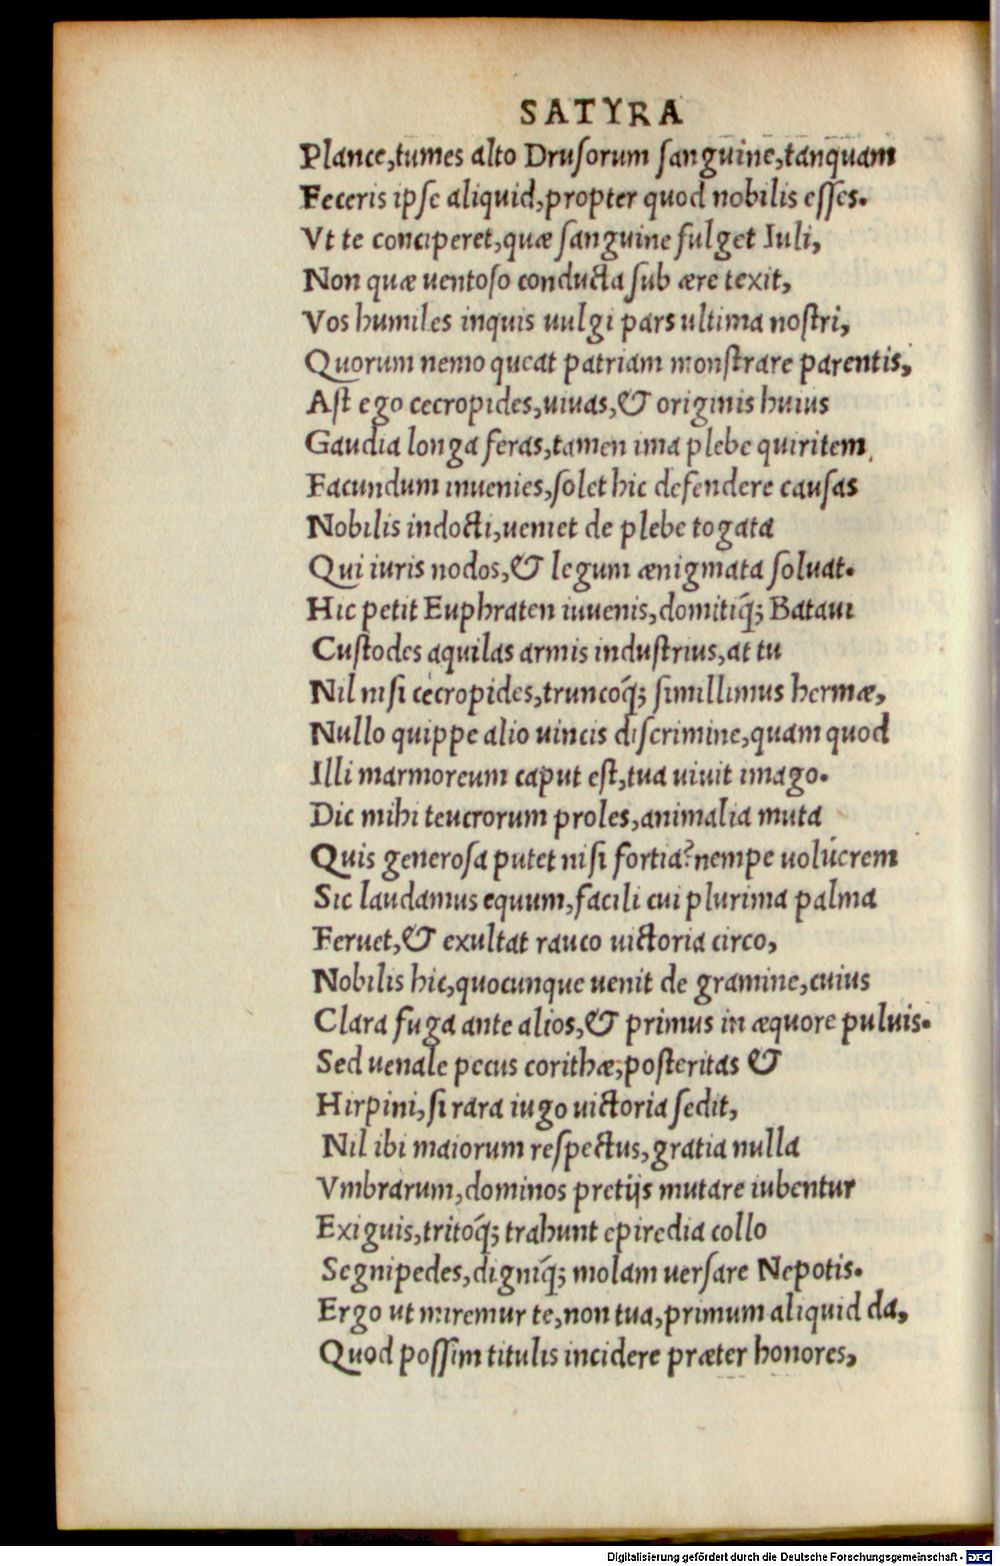 SATYRA
Plance,tumes alto Druſorum ſanguine,tanquam
Feceris ipſe aliquid,propter quod nobilis eſſes.
Vt te conciperet,quæ ſanguine fulget Iuli,
Non quæ uentoſo conducta ſub ære texit,
Vos humiles inquis uulgi pars ultima noſtri,
Quorum nemo queat patriam monſtrare parentis,
Aſt ego cecropides,uiuas,& originis huius
Gaudia longa feras,tamen ima plebe quiritem
Facundum inuenies,ſolet hic defendere cauſas
Nobilis indocti,ueniet de plebe togata
Qui iuris nodos,& legum ænigmata ſoluat.
Hic petit Euphraten iuuenis,domitiq́; Bataui
Cuſtodes aquilas armis induſtrius,at tu
Nil niſi cecropides,truncoq́; ſimillimus hermæ,
Nullo quippe alio uincis diſcrimine,quam quod
Illi marmoreum caput eſt,tua uiuit imago.
Dic mihi teucrorum proles,animalia muta
Quis generoſa putet niſi fortia?nempe uolúcrem
Sic laudamus equum,facili cui plurima palma
Feruet,& exultat rauco uictoria circo,
Nobilis hic,quocunque uenit de gramine,cuius
Clara fuga ante alios,& primus in æquore puluis.
Sed uenale pecus corithæ,poſteritas &
Hirpini,ſi rara iugo uictoria ſedit,
Nil ibi maiorum reſpectus,gratia nulla
Vmbrarum,dominos pretijs mutare iubentur
Exiguis,tritoq́; trahunt epiredia collo
Segnipedes,digniq́; molam uerſare Nepotis.
Ergo ut miremur te,non tua,primum aliquid da,
Quod poſſim titulis incidere præter honores,
Digitalisierung gefördert durch die Deutsche Forschungsgemeinschaft - DFG